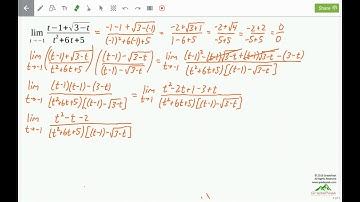 lim t→-1 (t-1+√(3-t))/(t²+6t+5) = (-1-1+√(3-(-1)))/((-1)²+6(-1)+5) = (-2+√(3+1))/(1-6+5) = (-2+√4)/(-5+5) = (-2+2)/(-5+5) = 0/0
lim t→-1 ((t-1)+√(3-t))/(t²+6t+5) · ((t-1)-√(3-t))/((t-1)-√(3-t)) = lim t→-1 ((t-1)²-(t-1)√(3-t)+(t-1)√(3-t)-(3-t))/((t²+6t+5)[(t-1)-√(3-t)])
lim t→-1 ((t-1)(t-1)-(3-t))/((t²+6t+5)[(t-1)-√(3-t)]) = lim t→1 (t²-2t+1-3+t)/((t²+6t+5)[(t-1)-√(3-t)])
lim t→-1 (t²-t-2)/((t²+6t+5)[(t-1)-√(3-t)])